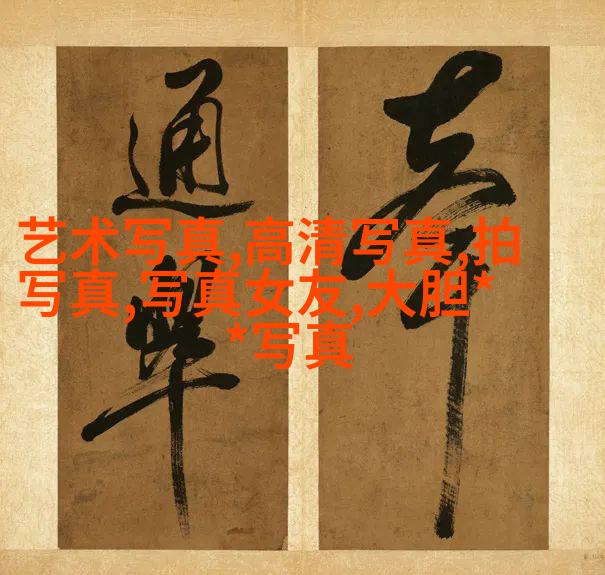 通
艺术写真,高清写真,拍
写真,写真女友,大胆*
*写真